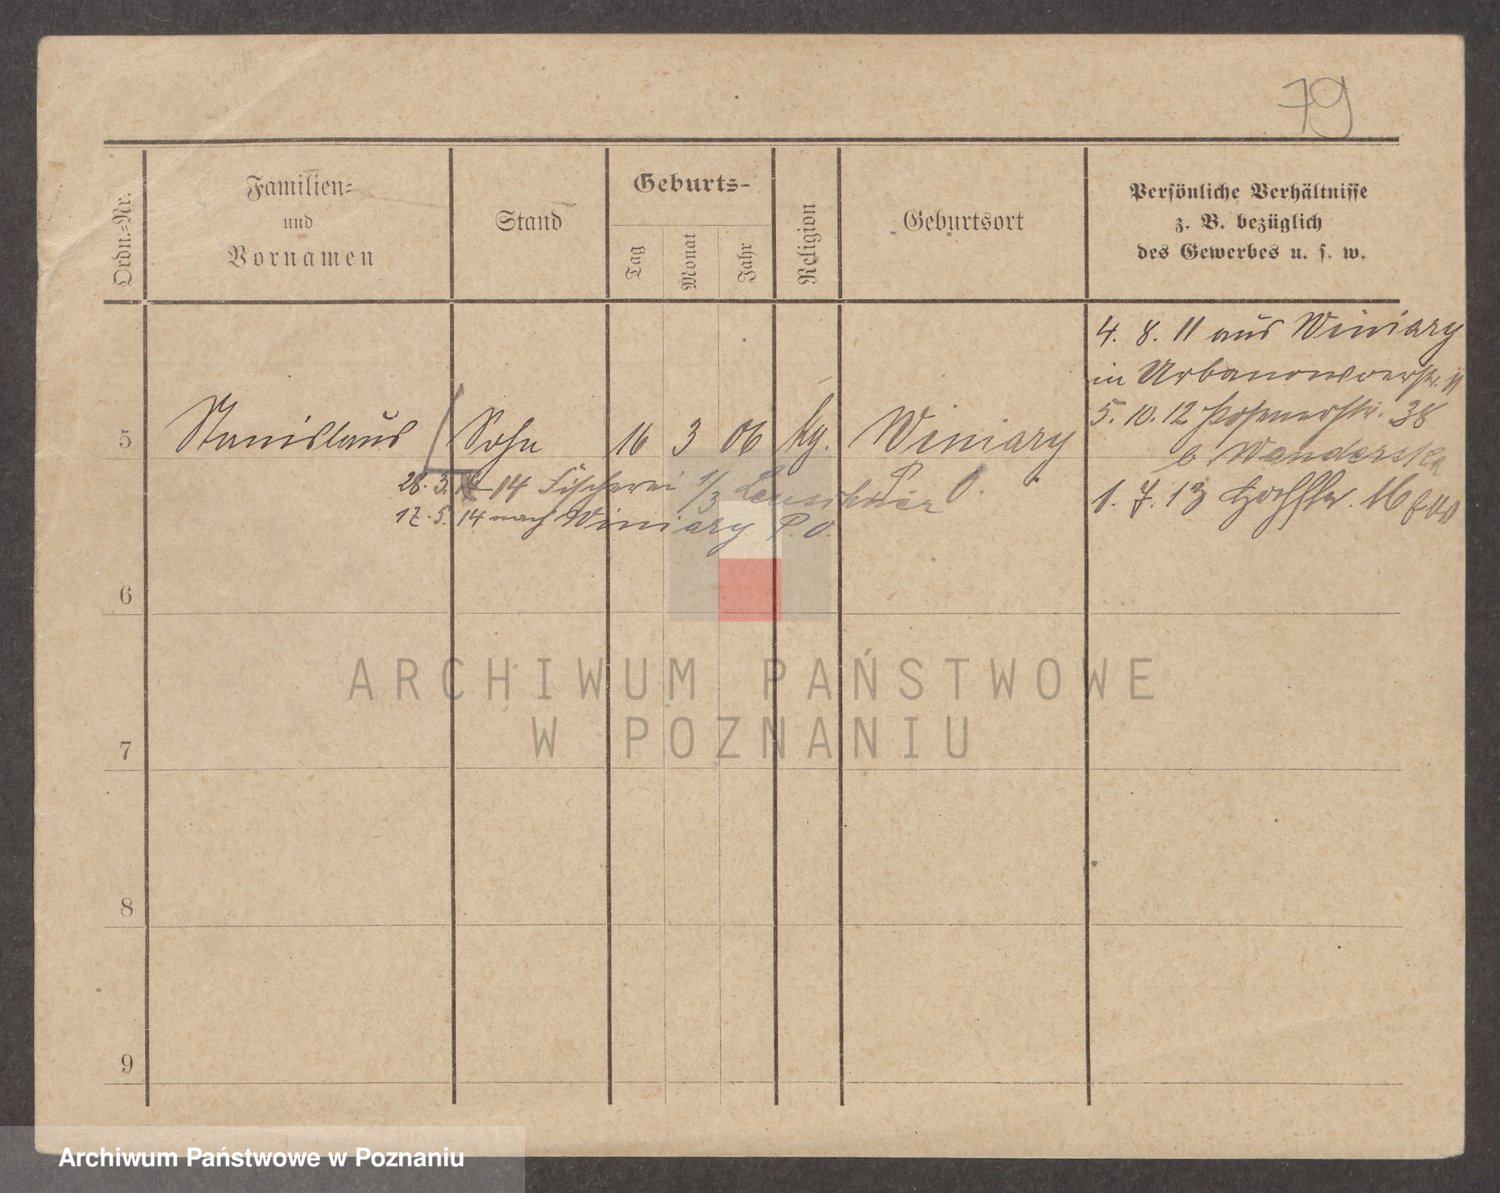 79
Ordn.-Nr.
Familien-
und
Vornamen
Stand
Geburts-
Tag
Monat
Jahr
Religion
Geburtsort
Persönliche Verhältnisse
z. B. bezüglich
des Gewerbes u. s. w.
4. 8. 11 aus Winiary
in Urbanowoerstr. 11
5. 10. 12 Posenerstr. 38
b. Wanderska
1. 7. 13 16
5 Stanislaus Sohn 16 3 06 kg. Winiary
28. 3. 14 Fischerei 1/3
12. 5. 14 nach Winiary P. O.
6
7
8
9
ARCHIWUM PAŃSTWOWE
W POZNANIU
Archiwum Państwowe w Poznaniu